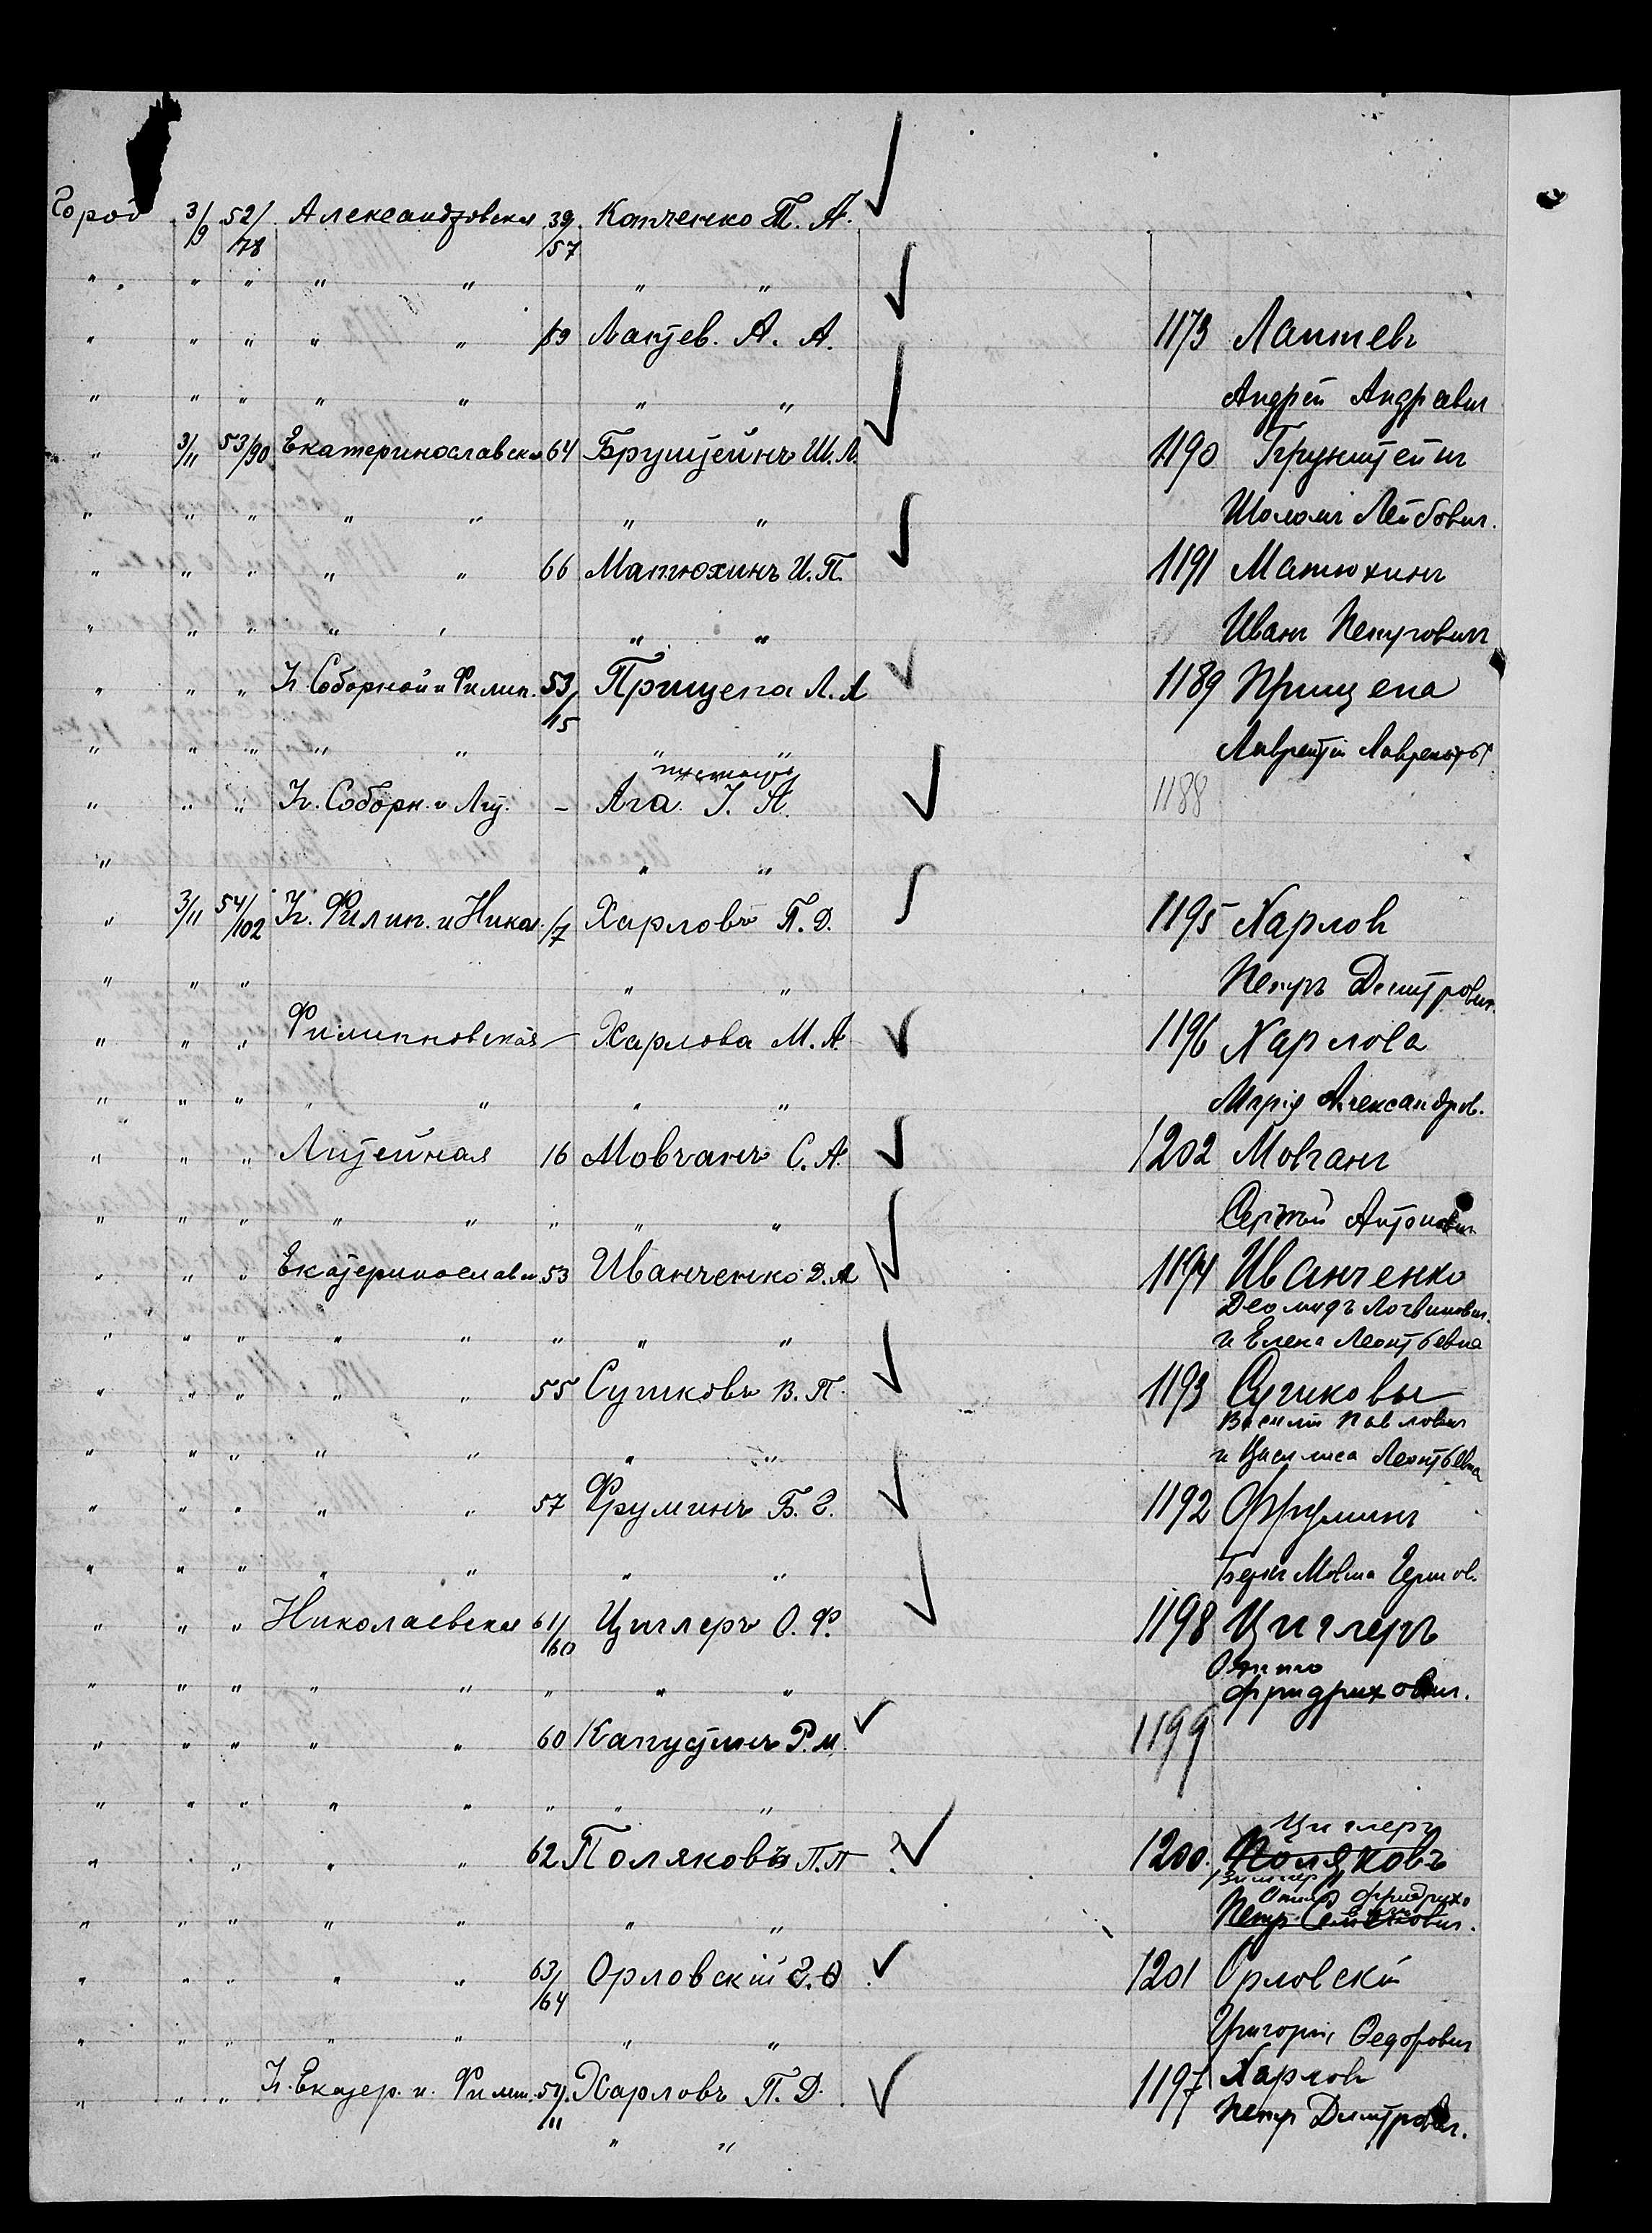 Город 3/9 52/78 Александровская 39/57 Капченко П. А.
" " " " " " "
" " " " " 59 Лаптев. А. А. 1173 Лаптевъ
" " " " " " " Андрей Андреевич
" 3/11 53/90 Екатеринославская 64 Брунштейнъ Ш. Л. 1190 Брунштейнъ
" " " " " " " Шоломъ Лейбович.
" " " " " 66 Матюхинъ И. П. 1191 Матюхинъ
" " " " " " " Иванъ Петрович
" " " Уг. Соборной и Филип. 53/15 Прищепа Л. Л 1189 Прищепа
" " " " " " " Лаврентій
" " " Уг. Соборн. и Лит. – Ага І. А. 1188
" " "
" 3/11 54/102 Уг. Филип. и Никол. /7 Харловъ П. Д. 1195 Харлов
" " " " " Петръ Дмитрович.
" " " Филипповская – Харлова М. А. 1196 Харлова
" " " " " " " Марія Александров.
" " " Литейная 16 Мовчанъ С. А. 1202 Мовчанъ
" " " " " " " " Сергѣй Антонович
" " " Екатеринославс. 53 Иванченко Д. Л 1194 Иванченко
Деомидъ Логвинович.
" " " " " " " " и Елена Леонтьевна
" " " " " 55 Сушковъ В. П. 1193 Сушковы
Василій Павлович
" " " " " " " и Василиса Леонтьевна
" " " " " 57 Фруминъ Б. Г. 1192 Фруминъ
" " " " " " " Беръ Мовша Гершов.
" " " Николаевская 61/60 Циглеръ О. Ф. 1198 Циглеръ
Оттто
" " " " " " " " Фридрихович.
" " " " " 60 Капустинъ Р. М. 1199
" " " " " " " "
" " " " 62 Поляковъ П. П ? 1200. Циглеръ
Поляковъ
Фридрихо
" " " " " " " Петр Семенович.
" " " " " 63/64 Орловскій Г. Ѳ. 1201 Орловскій
" " " " " " " Григорій Ѳедорович
" " " Уг. Екатер. и Филип. 59/11 Харловъ П. Д. 1197 Харлов
" " Петр Дмитрович.